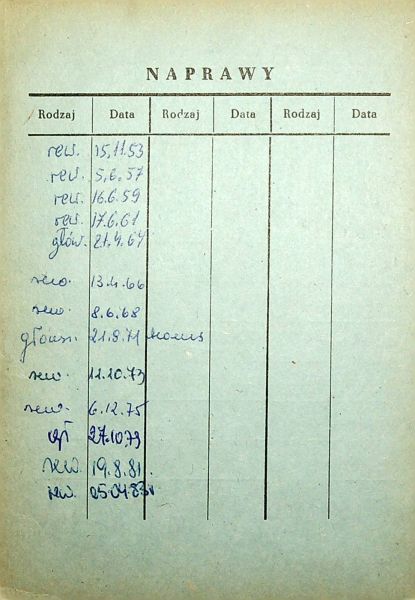 NAPRAWY
Rodzaj Data Rodzaj Data Rodzaj Data
rew. 15.11.53
rew. 5.6.57
rew. 16.6.59
rew. 17.6.61
głów. 21.4.64
rew. 13.4.66
rew. 8.6.68
główn. 21.8.71
rew. 11.10.73
rew. 6.12.75
27.10.79
rew. 19.8.81.
rew. 05.04.83r